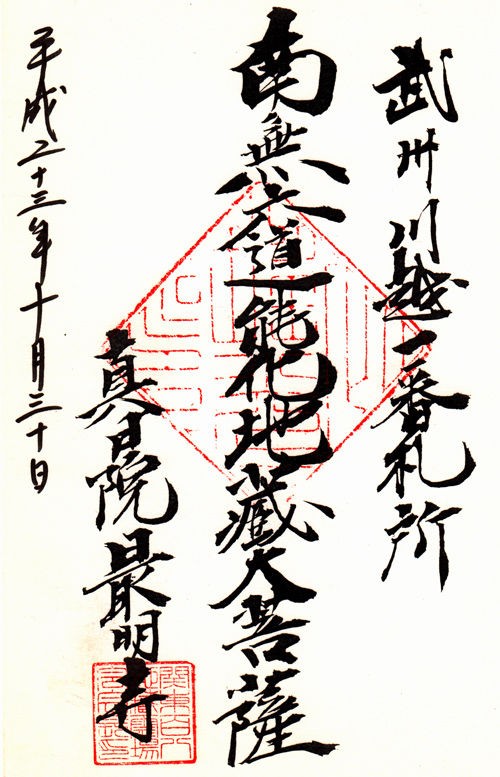 武州川越一番札所
南無六道能化地蔵大菩薩
院 最明寺
平成二十三年十月三十日
關東百八